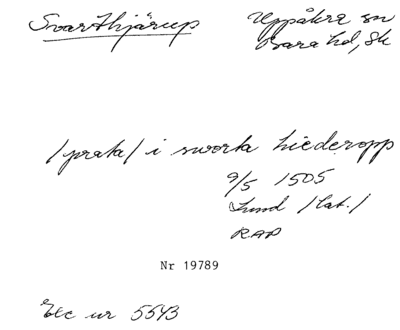 Svarthjärup Uppåkra sn
Bara hd, Sk
/prata/ i sworta hiederopp
9/5 1505
Lund /lat./
RAP
Nr 19789
Exc ur 5543